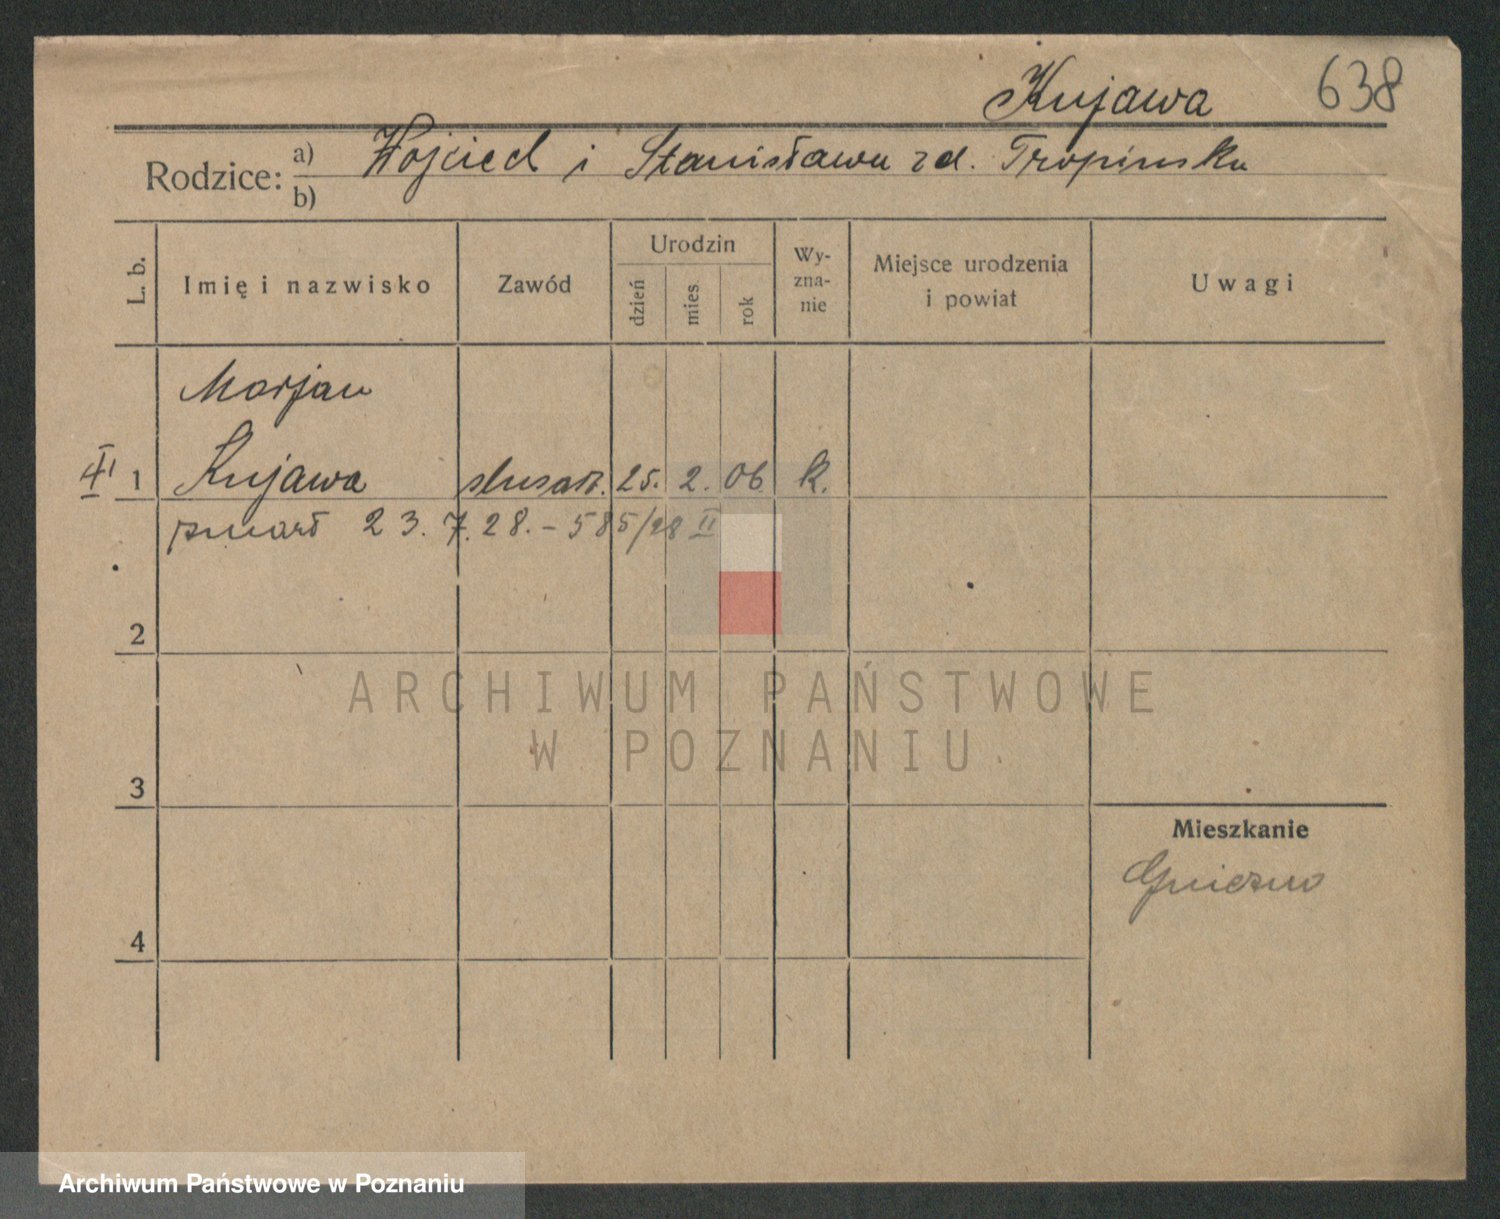 Kujawa 638
Rodzice: a) Wojciech i Stanisława zd. Tropinska
b)
L. b.
Imię i nazwisko
Zawód
Urodzin
dzień
mies.
rok
Wy-
zna-
nie
Miejsce urodzenia
i powiat
Uwagi
Marjan
1 Kujawa ślusarz. 25. 2. 06 k.
zmarł 23.7.28. – 585/28 II
2
3
4
Mieszkanie
Gniezno
ARCHIWUM PAŃSTWOWE
W POZNANIU
Archiwum Państwowe w Poznaniu